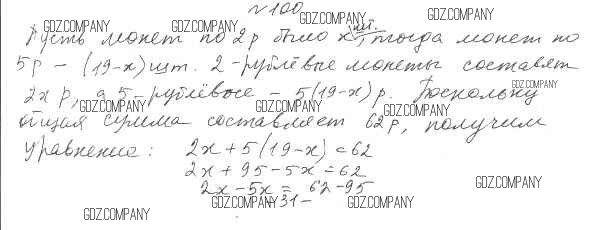 №100
Пусть монет по 2р было x шт., тогда монет по
5р – (19-x) шт. 2-рублёвые монеты составят
2x р, а 5-рублёвые – 5(19-x) р. Поскольку
общая сумма составляет 62р, получим
уравнение: 2x + 5(19-x) = 62
2x + 95 - 5x = 62
2x - 5x = 62 - 95
- 31 -
GDZ.COMPANY
GDZ.COMPANY
GDZ.COMPANY
GDZ.COMPANY
GDZ.COMPANY
GDZ.COMPANY
GDZ.COMPANY
GDZ.COMPANY
GDZ.COMPANY
GDZ.COMPANY
GDZ.COMPANY
GDZ.COMPANY
GDZ.COMPANY